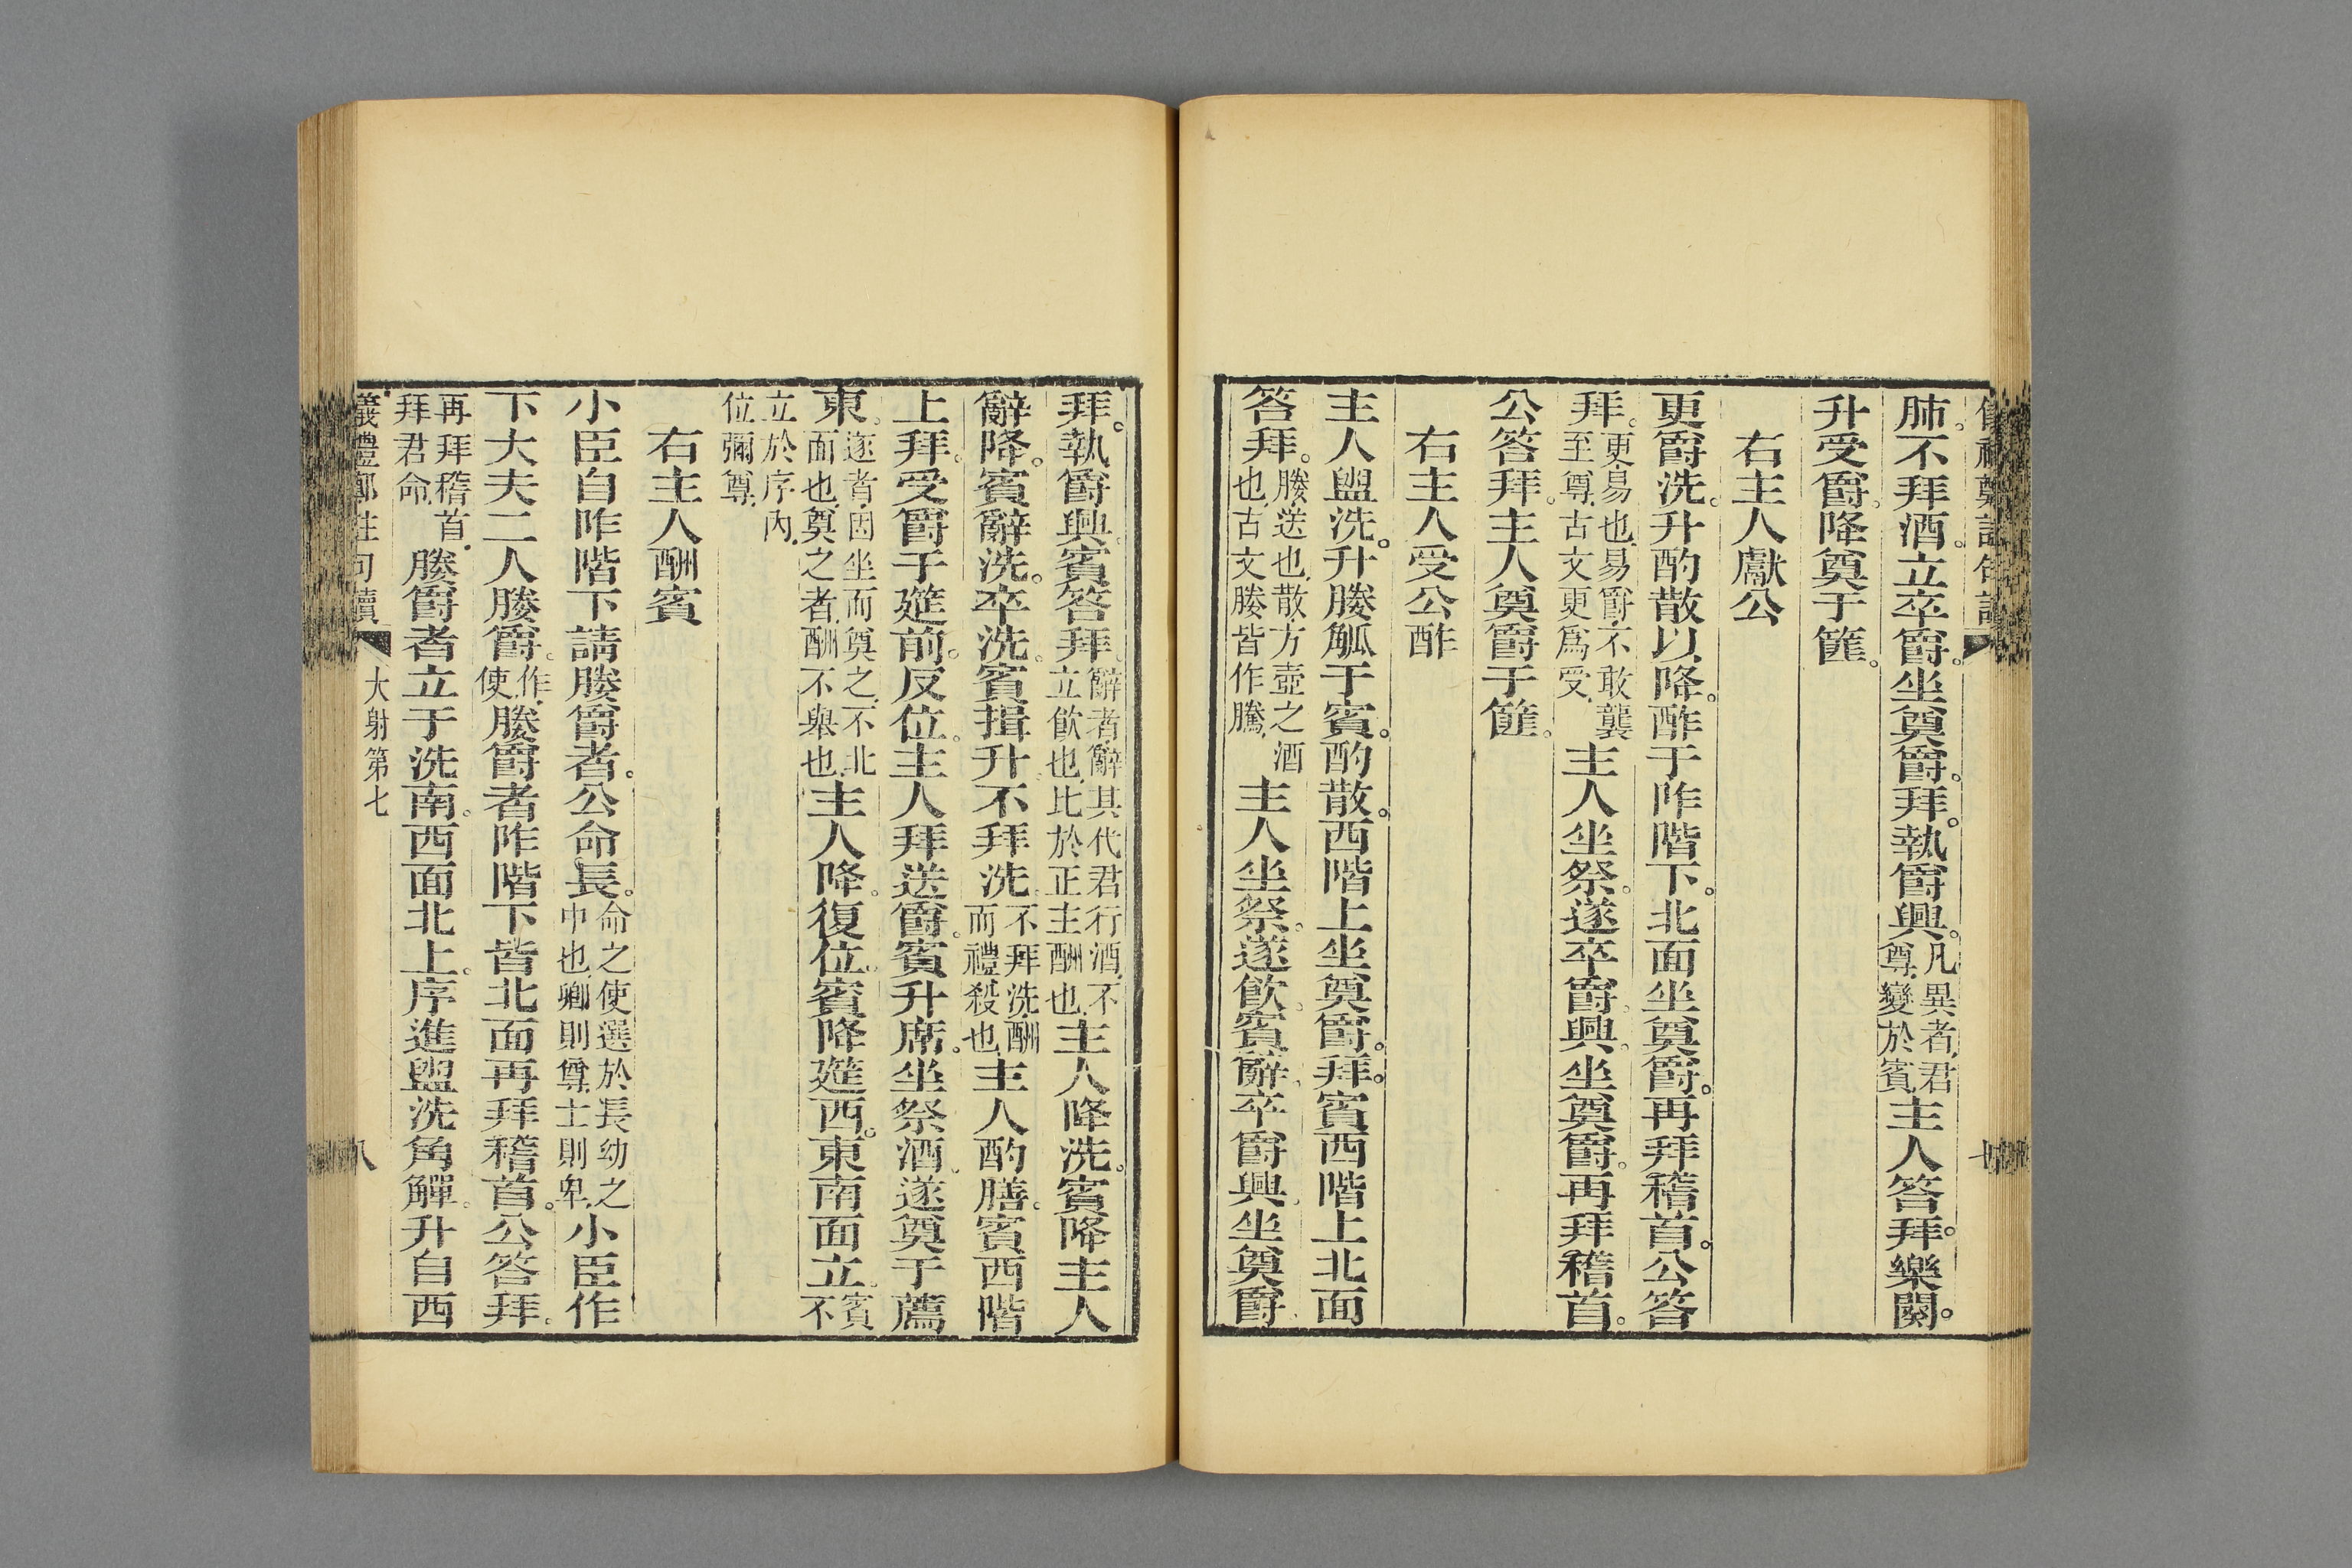 肺。不拜酒。立卒爵。坐奠爵。拜。執爵興。凡異者。君尊。變於賓。主人答拜。樂闋。
升受爵。降奠于篚。
右主人獻公
更爵洗。升酌散以降。酢于阼階下。北面坐奠爵。再拜稽首。公答
拜。更。易也。易爵。不敢襲至尊。古文更爲受。主人坐祭。遂卒爵興。坐奠爵。再拜稽首。
公答拜。主人奠爵于篚。
右主人受公酢
主人盥洗。升媵觚于賓。酌散。西階上坐奠爵。拜。賓西階上北面
答拜。媵。送也。散。方壺之酒也。古文媵皆作騰。主人坐祭。遂飲。賓辭。卒爵興。坐奠爵。
拜。執爵興。賓答拜。辭者。辭其代君行酒。不立飲也。比於正主酬也。主人降洗。賓降。主人
辭降。賓辭洗。卒洗。賓揖升。不拜洗。不拜洗。酬而禮殺也。主人酌膳。賓西階
上拜。受爵于筵前。反位。主人拜送爵。賓升席。坐祭酒。遂奠于薦
東。遂者。因坐而奠之。不北面也。奠之者。酬不舉也。主人降。復位。賓降筵西。東南面立。賓不
立於序內。位彌尊。
右主人酬賓
小臣自阼階下請媵爵者。公命長。命之使選於長幼之中也。卿則尊。士則卑。小臣作
下大夫二人媵爵。作。使。媵爵者阼階下皆北面再拜稽首。公答拜。
再拜稽首。拜君命。媵爵者立于洗南。西面北上。序進盥洗角觶。升自西
儀禮鄭註句讀
大射第七
八